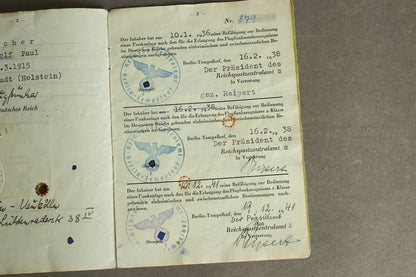 2
cher
olf Paul
.3.1915
adt (Holstein)
Flugfunker
eutsches Reich
Neukölln
38 IV
3
Nr. 879
Der Inhaber hat am 10.1.36 seine Befähigung zur Bedienung
einer Funkanlage nach den für die Erlangung des Flugfunkerzeugnisses
im Deutschen Reiche geltenden einheimischen und zwischenstaatlichen Be-
stimmungen nachgewiesen.
Berlin-Tempelhof, den 16.2.38
Der Präsident des
Reichspostzentralamts
In Vertretung
(Stempel)
gez. Reipert
Der Inhaber hat am 16.2.38 seine Befähigung zur Bedienung
einer Funkanlage nach den für die Erlangung des Flugfunkerzeugnisses 2. Klasse
im Deutschen Reiche geltenden einheimischen und zwischenstaatlichen Be-
stimmungen nachgewiesen.
Berlin-Tempelhof, den 16.2.38
Der Präsident
des Reichspostzentralamts
In Vertretung
(Stempel)
Der Inhaber hat am 12.41 seine Befähigung zur Bedienung
einer Funkanlage nach den für die Erlangung des Flugfunkerzeugnisses 1. Klasse
im Deutschen Reiche geltenden einheimischen und zwischenstaatlichen Bestimmungen nach-
gewiesen.
Berlin-Tempelhof, den 19.12.41
Der Präsident
des Reichspostzentralamts
In Vertretung
(Stempel)